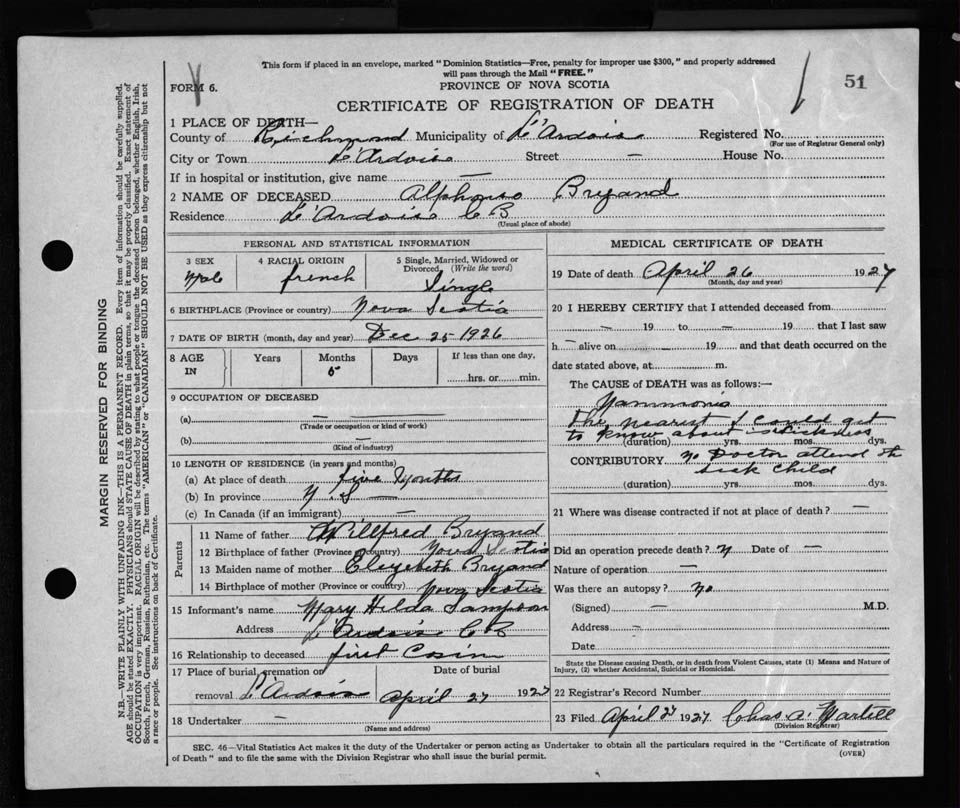 This form if placed in an envelope, marked "Dominion Statistics—Free, penalty for improper use $300," and properly addressed
will pass through the Mail "FREE."
FORM 6.
PROVINCE OF NOVA SCOTIA
51
CERTIFICATE OF REGISTRATION OF DEATH
1 PLACE OF DEATH—
County of Richmond Municipality of L'Ardoise Registered No.
(For use of Registrar General only)
City or Town L'Ardoise Street — House No.
If in hospital or institution, give name —
2 NAME OF DECEASED Alphonso Bryand
Residence L'Ardoise C B
(Usual place of abode)
PERSONAL AND STATISTICAL INFORMATION
3 SEX 4 RACIAL ORIGIN 5 Single, Married, Widowed or Divorced (Write the word)
Male french Single
6 BIRTHPLACE (Province or country) Nova Scotia
7 DATE OF BIRTH (month, day and year) Dec 25 1926
8 AGE IN Years Months Days If less than one day,
5 hrs. or min.
9 OCCUPATION OF DECEASED
(a) —
(Trade or occupation or kind of work)
(b) —
(Kind of industry)
10 LENGTH OF RESIDENCE (in years and months)
(a) At place of death five Months
(b) In province N. S —
(c) In Canada (if an immigrant) —
Parents
11 Name of father Willfred Bryand
12 Birthplace of father (Province or country) Nova Scotia
13 Maiden name of mother Elezebeth Bryand
14 Birthplace of mother (Province or country) Nova Scotia
15 Informant's name Mary Hilda Sampson
Address L'Ardois C B
16 Relationship to deceased first Cosin
17 Place of burial, cremation or Date of burial
removal L'Ardois April 27 1927
18 Undertaker —
(Name and address)
MEDICAL CERTIFICATE OF DEATH
19 Date of death April 26 1927
(Month, day and year)
20 I HEREBY CERTIFY that I attended deceased from
— 19 to — 19 that I last saw
h — alive on — 19 and that death occurred on the
date stated above, at m.
The CAUSE of DEATH was as follows:—
Nammonia
the nearest I could get
to know about sickness
(duration) yrs. mos. dys.
CONTRIBUTORY no Doctor attend the
sick child
(duration) yrs. mos. dys.
21 Where was disease contracted if not at place of death? —
Did an operation precede death? N Date of —
Nature of operation —
Was there an autopsy? No
(Signed) — M.D.
Address —
Date
State the Disease causing Death, or in death from Violent Causes, state (1) Means and Nature of
Injury, (2) whether Accidental, Suicidal or Homicidal.
22 Registrar's Record Number
23 Filed April 27 1927 Chas. A. Martell
(Division Registrar)
SEC. 46—Vital Statistics Act makes it the duty of the Undertaker or person acting as Undertaker to obtain all the particulars required in the "Certificate of Registration
of Death" and to file the same with the Division Registrar who shall issue the burial permit.
(OVER)
MARGIN RESERVED FOR BINDING
N.B.—WRITE PLAINLY WITH UNFADING INK—THIS IS A PERMANENT RECORD. Every item of information should be carefully supplied.
AGE should be stated EXACTLY. PHYSICIANS should STATE CAUSE OF DEATH in plain terms, so that it may be properly classified. Exact statement of
OCCUPATION is very important. RACIAL ORIGIN will be described by stating to what people or tongue the deceased person belonged, whether English, Irish,
Scotch, French, German, Russian, Ruthenian, etc. The terms "AMERICAN" or "CANADIAN" SHOULD NOT BE USED as they express citizenship but not
a race or people. See instructions on back of Certificate.